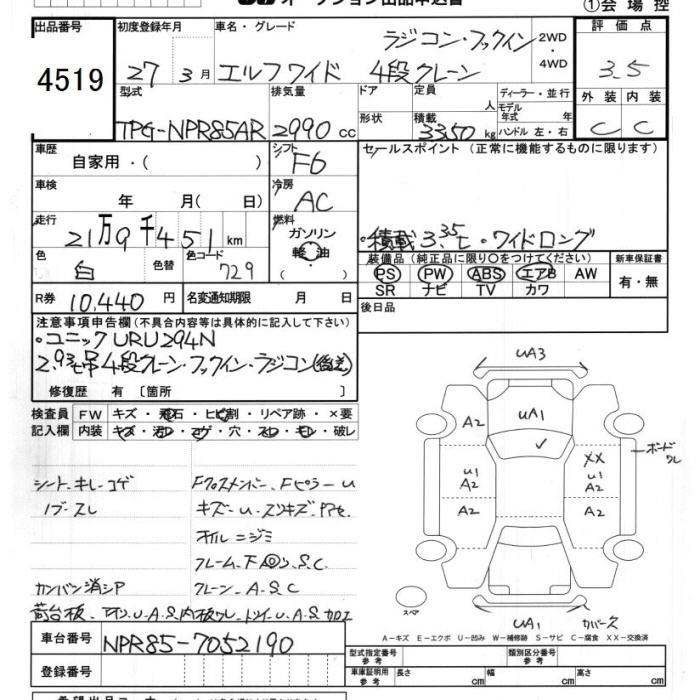 オークション出品申込書
①会場控
出品番号
4519
初度登録年月
27 3月
車名・グレード
エルフワイド
ラジコン・フックイン
4段クレーン
2WD・4WD
評価点
3.5
型式
TPG-NPR85AR
排気量
2990 cc
ドア
形状
定員
人
積載
3350 kg
ディーラー・並行
モデル年式 年
ハンドル 左・右
外装 内装
C C
車歴
自家用・( )
シフト
F6
セールスポイント(正常に機能するものに限ります)
車検
年 月(日)
冷房
AC
走行
21万9千451km
燃料
ガソリン
軽油
・積載3.35t・ワイドロング
色
白
色替
色コード
729
装備品(純正品に限り○をつけてください)
PS PW ABS エアB AW
SR ナビ TV カワ
新車保証書
有・無
R券 10,440 円
名変通知期限 月 日
後日品
注意事項申告欄(不具合内容等は具体的に記入して下さい)
・ユニックURU294N
2.93t吊4段クレーン・フックイン・ラジコン(後送)
修復歴 有〔箇所 〕
検査員記入欄
FW キズ・飛石・ヒビ割・リペア跡・×要
内装 キズ・汚レ・コゲ・穴・スレ・キレ・破レ
シート・キレ・コゲ
ノブ・スレ
カンバン消シア
Fクロスメンバー、FピラーU
キズ・U・スリキズ・アセ
オイルニジミ
フレーム・下回り、S.C
クレーン・A.S.C
荷台板、アオリ、U.A.S、内板ワレ、トリイ、U.A.S カロエ
UA3
A2
UA1
✓
U1
A2
A2
A2
XX
U1
A2
A2
ボードワレ
スペア
UA1
カバース
A-キズ E-エクボ U-凹み W-補修跡 S-サビ C-腐食 XX-交換済
車台番号
NPR85-7052190
登録番号
型式指定番号
参考
類別区分番号
参考
車庫証明用
参考
長さ cm
幅 cm
高さ cm